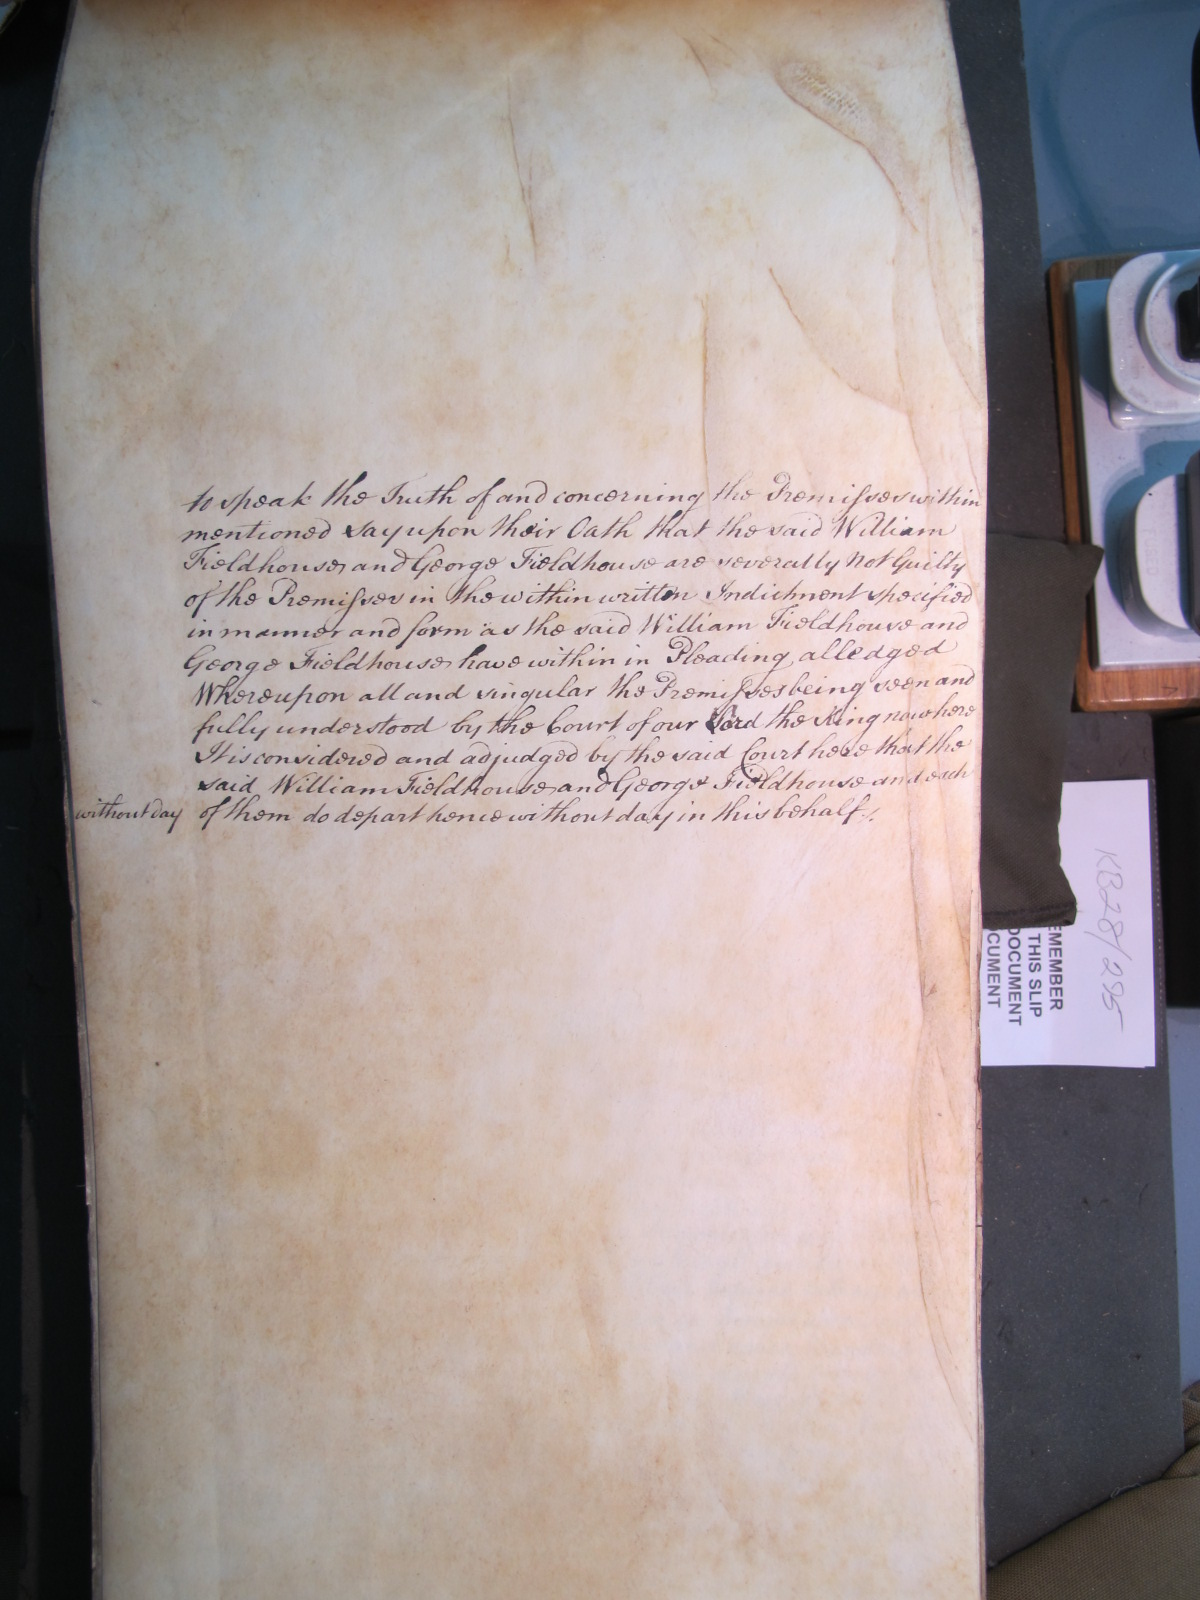 to speak the Truth of and concerning the Premisses within
mentioned say upon their Oath that the said William
Fieldhouse and George Fieldhouse are severally not Guilty
of the Premisses in the within written Indictment specified
in manner and form as the said William Fieldhouse and
George Fieldhouse have within in Pleading alledged
Whereupon all and singular the Premisses being seen and
fully understood by the Court of our Lord the King now here
It is considered and adjudged by the said Court here that the
said William Fieldhouse and George Fieldhouse and each
without day of them do depart hence without day in this behalf.
KB28/295
EMEMBER
THIS SLIP
DOCUMENT
CUMENT